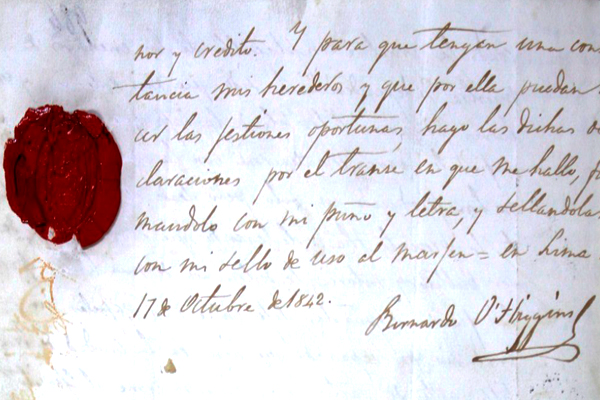 nor y credito. Y para que tengan una con
tancia mis herederos y que por ella puedan
cer las gestiones oportunas, hago las dichas
claraciones por el transe en que me hallo,
mandolo con mi puño y letra, y sellandolas
con mi sello de uso al margen = en Lima
17 de Octubre de 1842.
Bernardo O'Higgins